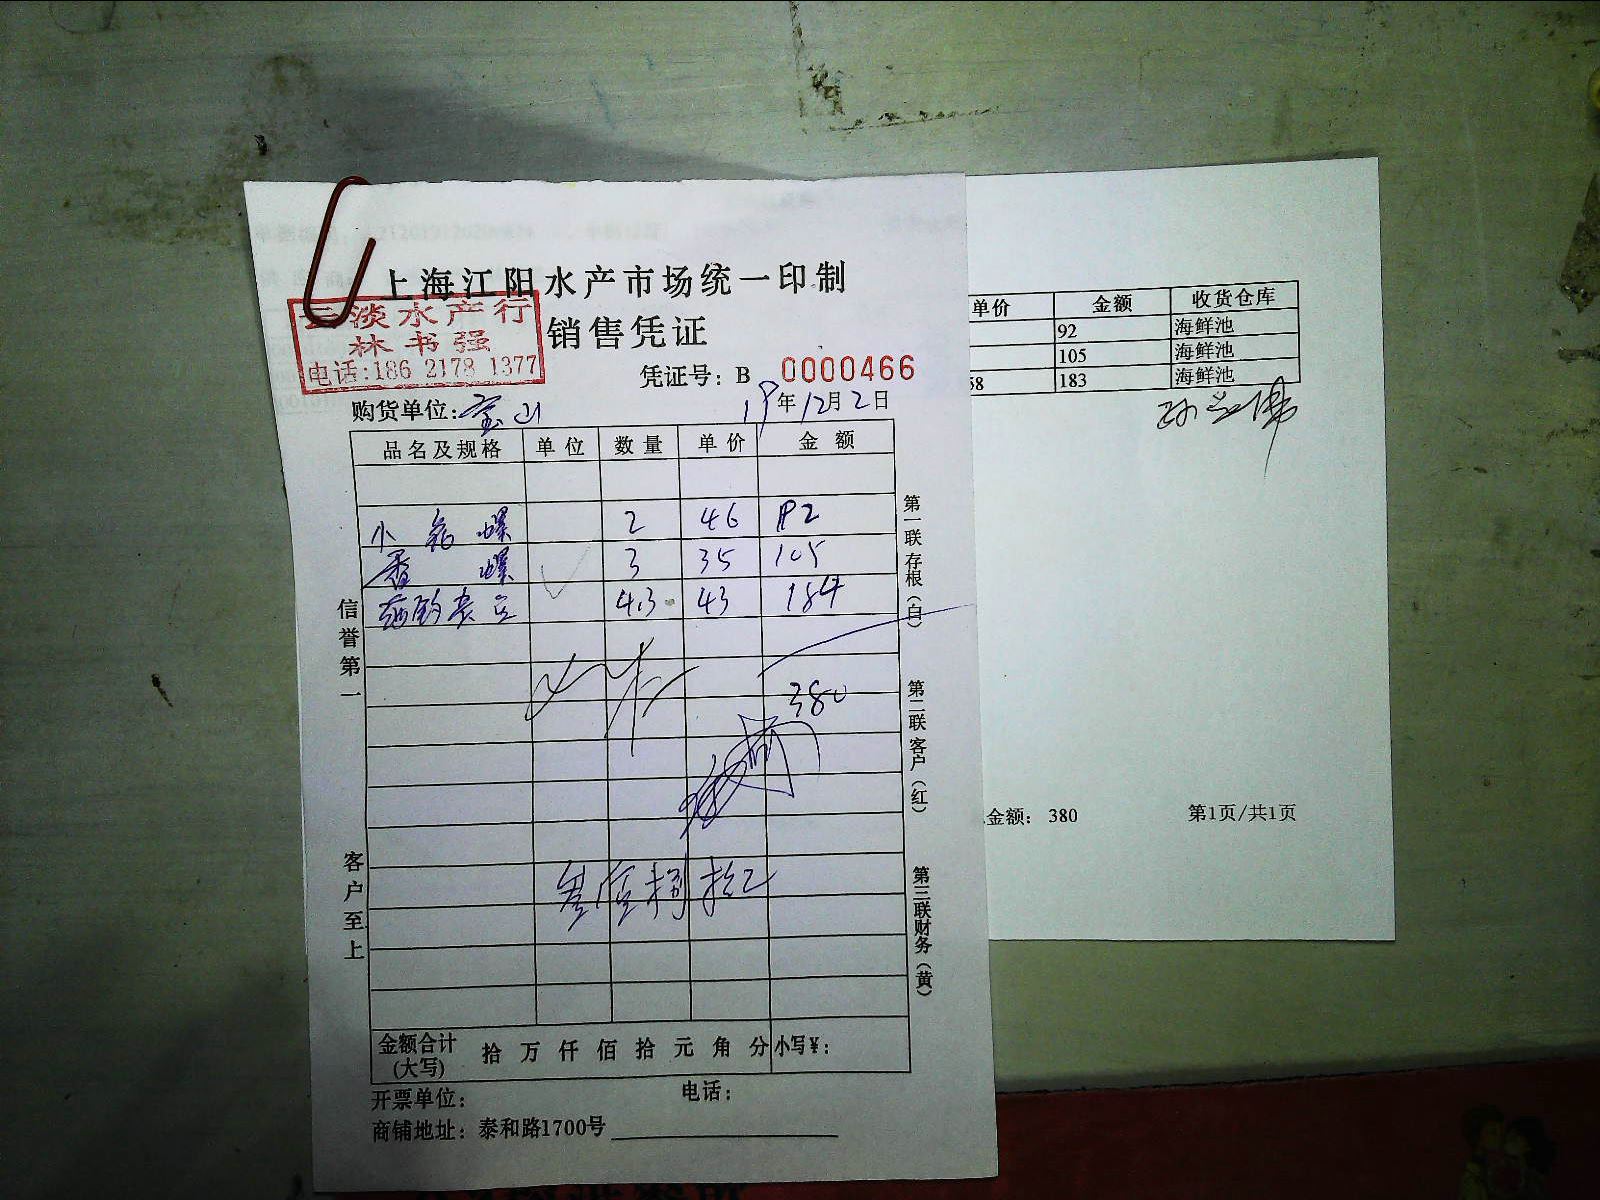 上海江阳水产市场统一印制
淡水产行
林书强
电话:186 2178 1377
销售凭证
凭证号: B 0000466
购货单位: 宝山 19年12月2日
品名及规格 单位 数量 单价 金额
小 螺 2 46 92
香 螺 3 35 105
4.3 43 184
380
叁佰捌拾元
金额合计(大写) 拾 万 仟 佰 拾 元 角 分 小写¥:
开票单位: 电话:
商铺地址: 泰和路1700号
信誉第一
客户至上
第一联存根(白)
第二联客户(红)
第三联财务(黄)
单价 金额 收货仓库
92 海鲜池
105 海鲜池
58 183 海鲜池
金额: 380 第1页/共1页